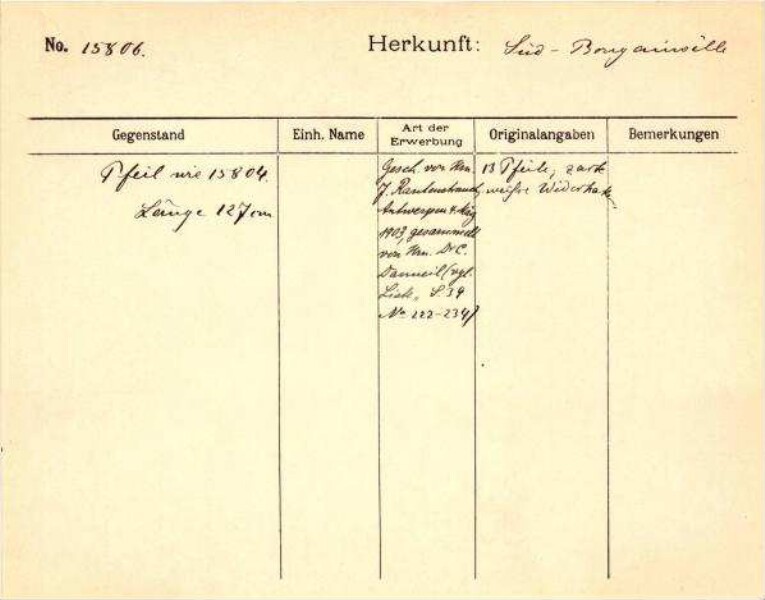 No. 15806.
Herkunft: Süd-Bougainville
Gegenstand
Einh. Name
Art der Erwerbung
Originalangaben
Bemerkungen
Pfeil wie 15804.
Länge 127cm
Gesch. von Hrn.
J. Rautenstrauch,
Antwerpen
1903, gesammelt
von Hrn. Dr. C.
Danneil (vgl.
Liste, S. 39
No 222-234)
13 Pfeile, zart
Widerhak